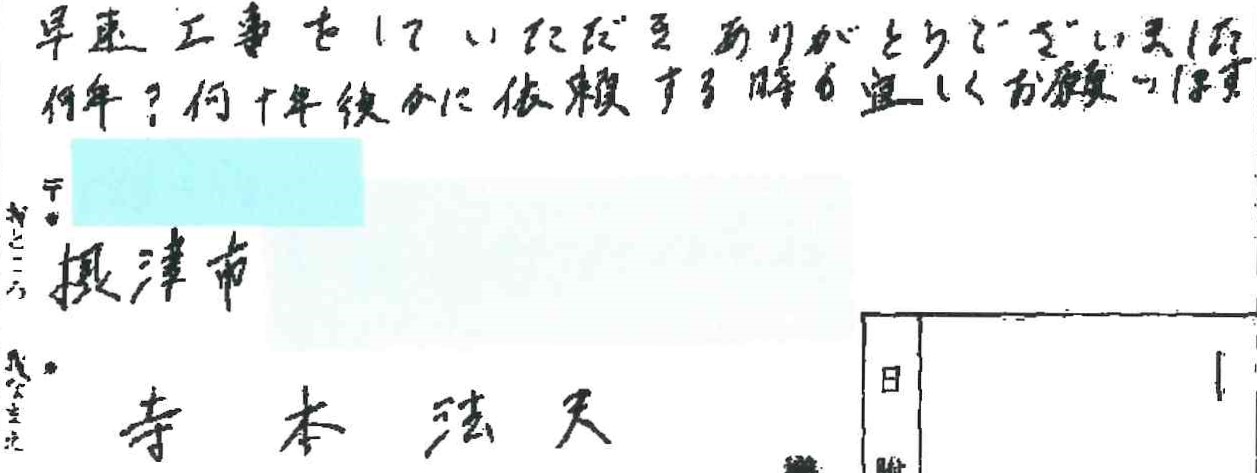 早速工事をしていただきありがとうございました
何年?何十年後かに依頼する時も宜しくお願いします
〒*
おところ
摂津市
*
寺本法天
日
附